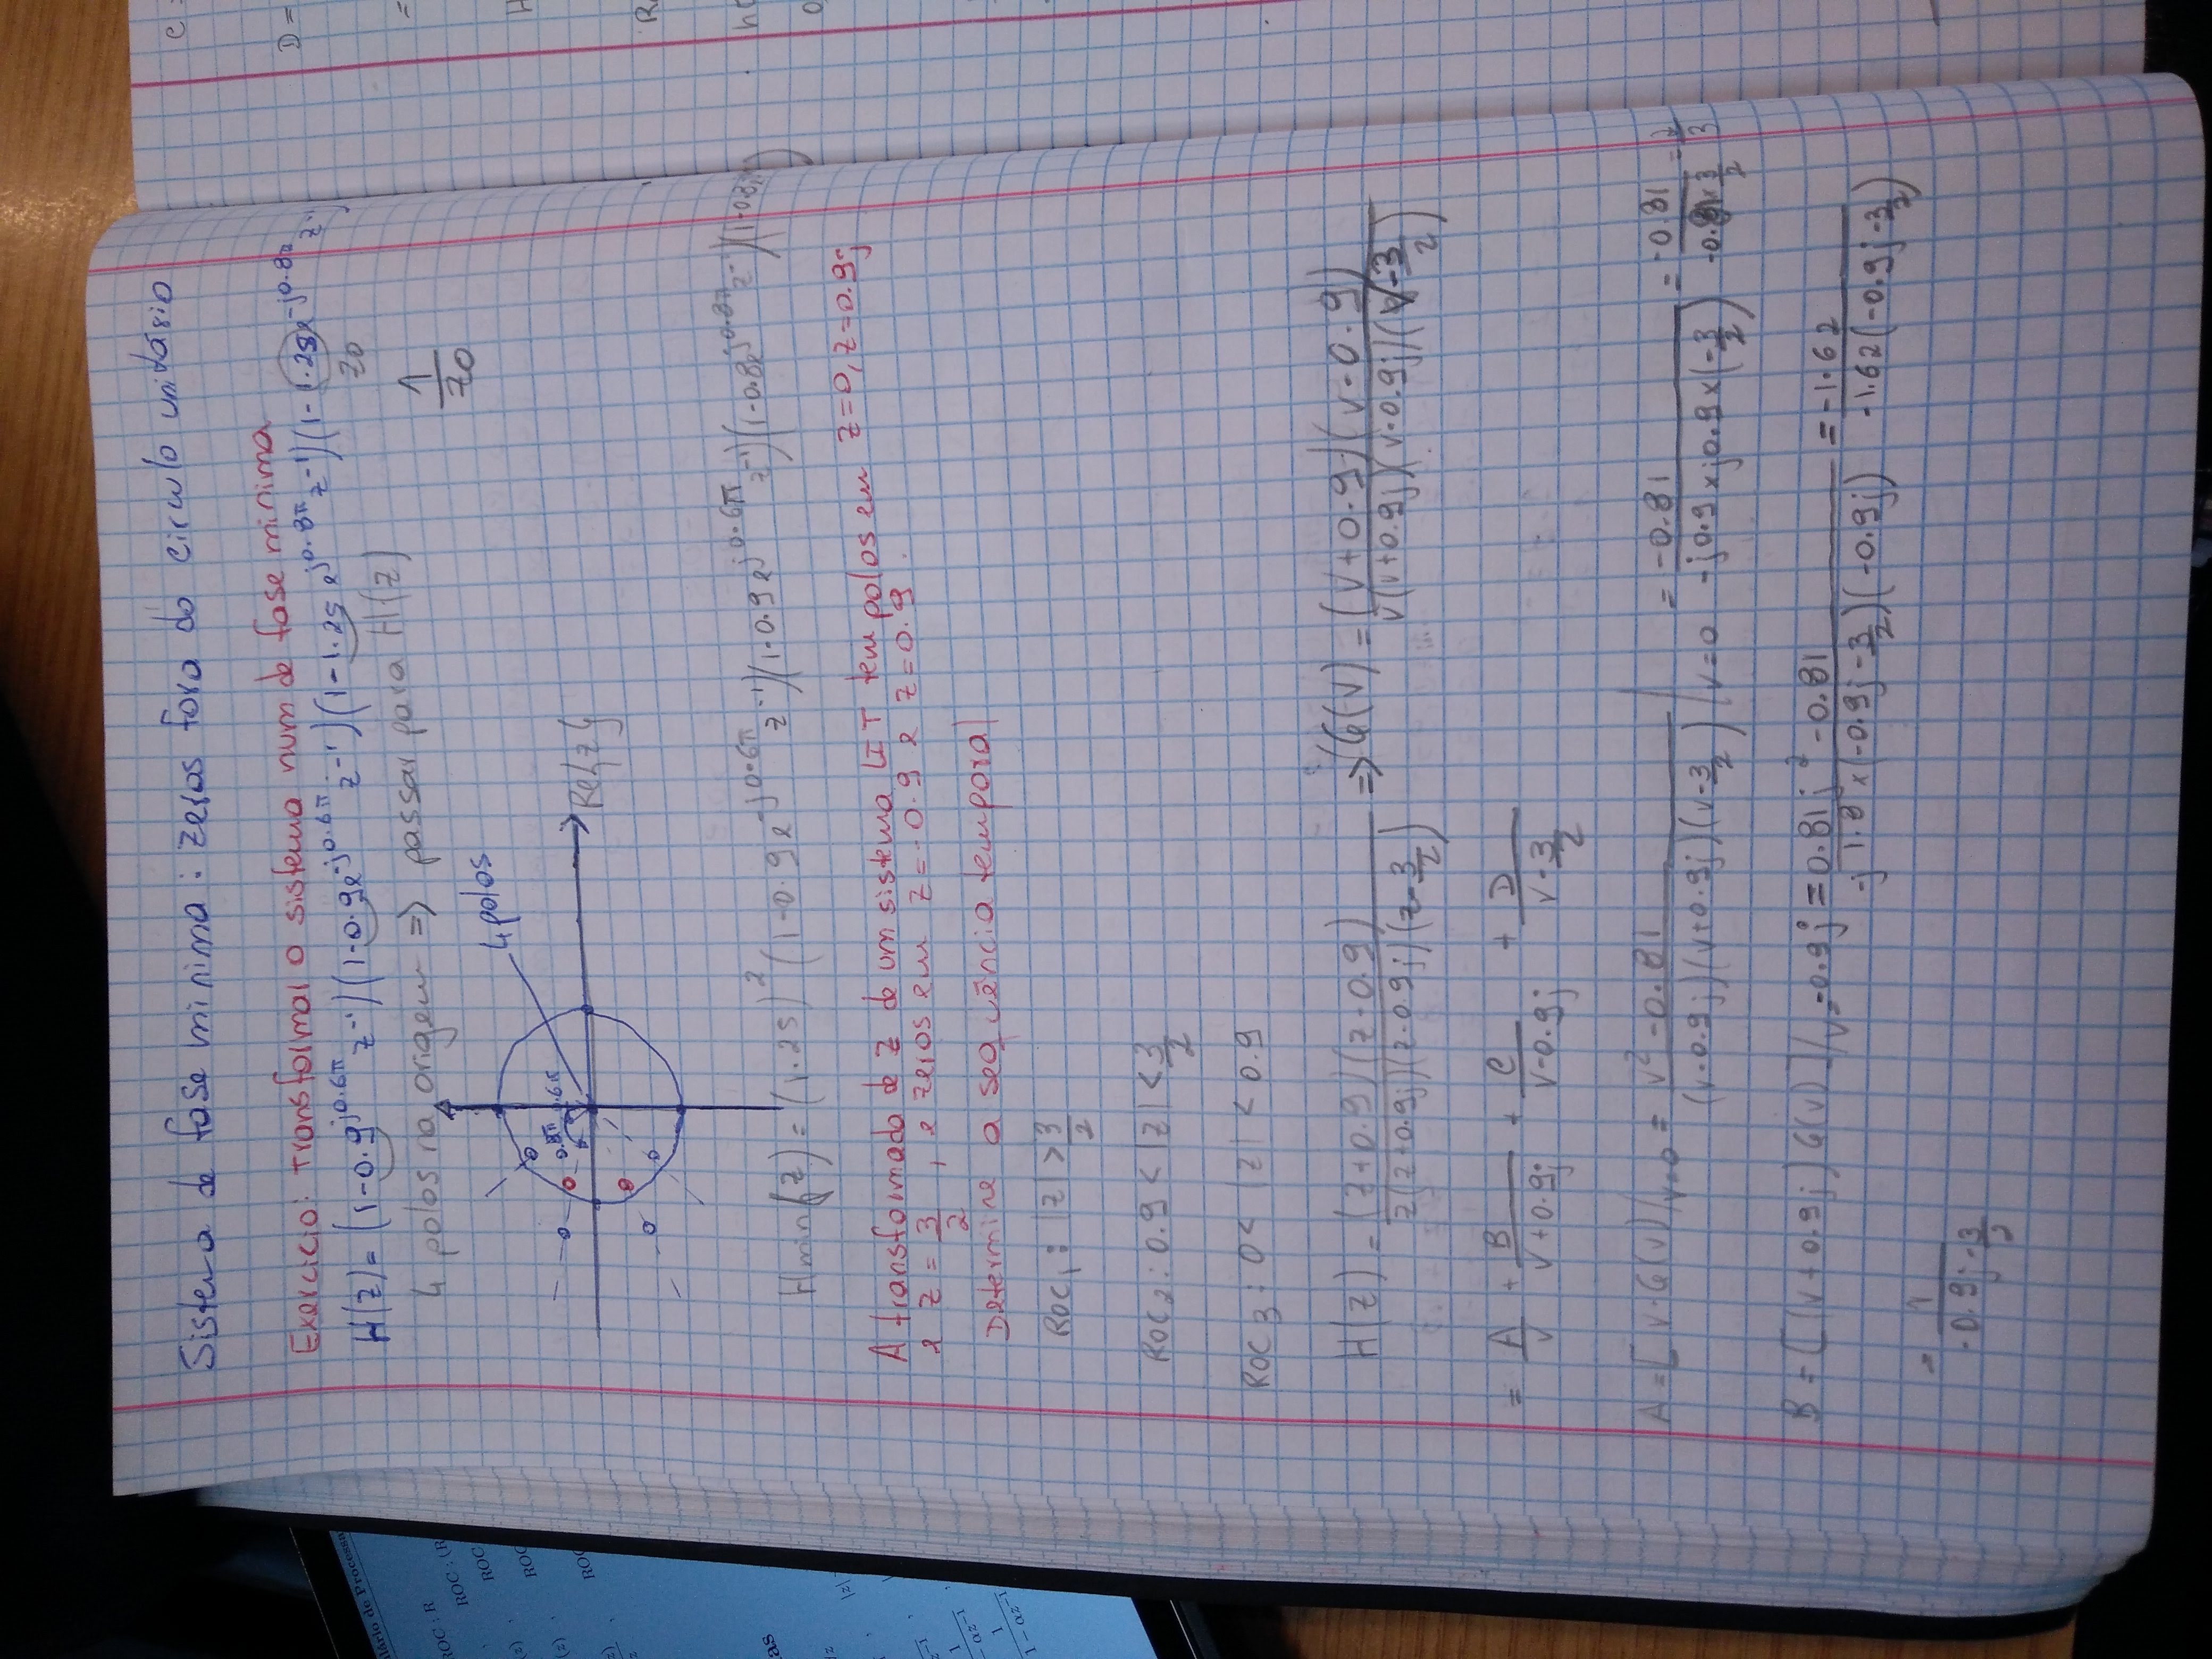 Sistema de fase minima: zeros fora do circulo unitário
Exercicio: transformar o sistema num de fase minima
H(z) = (1-0.9e^{j0.6π} z^{-1})(1-0.9e^{-j0.6π} z^{-1})(1-1.25e^{j0.8π} z^{-1})(1-1.25e^{-j0.8π} z^{-1})
z0
4 polos na origem => passar para H(z)
1/z0
4 polos
0.6π
0.8π
Re{z}
Hmin(z) = (1.25)^2 (1-0.9e^{-j0.6π} z^{-1})(1-0.9e^{j0.6π} z^{-1})(1-0.8e^{j0.8π} z^{-1})(1-0.8
A transformada de z de um sistema LIT tem polos em z=0, z=0.9j
e z=3/2, e zeros em z=-0.9 e z=0.9.
Determine a sequência temporal
ROC1: |z| > 3/2
ROC2: 0.9 < |z| < 3/2
ROC3: 0 < |z| < 0.9
H(z) = (z+0.9)(z-0.9)/z(z+0.9j)(z-0.9j)(z-3/2) => G(v) = (v+0.9)(v-0.9)/v(v+0.9j)(v-0.9j)(v-3/2)
= A/v + B/v+0.9j + C/v-0.9j + D/v-3/2
A = [v·G(v)]|v=0 = v^2-0.81/(v-0.9j)(v+0.9j)(v-3/2) |v=0 = -0.81/-j0.9×j0.9×(-3/2) = -0.81/-0.81×3/2 = 2/3
B = [(v+0.9j)G(v)]|v=-0.9j = 0.81j^2-0.81/-j1.8×(-0.9j-3/2)(-0.9j) = -1.62/-1.62(-0.9j-3/2)
= 1/-0.9j-3/2
C =
D =
=
ROC : R
ROC
1/1-αz^{-1}